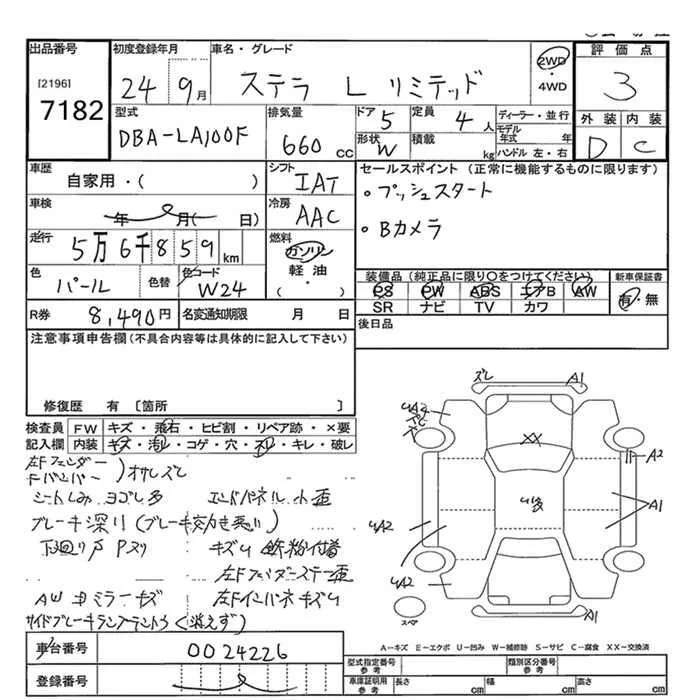 出品番号 初度登録年月 車名・グレード 2WD・4WD 評価点
[2196] 7182 24 9月 ステラ L リミテッド 3
型式 DBA-LA100F 排気量 660 CC ドア 5 定員 4人 ディーラー・並行 外装 内装
形状 W 積載 kg モデル年式 年 ハンドル 左・右 D C
車歴 自家用・( ) シフト IAT セールスポイント (正常に機能するものに限ります)
。プッシュスタート
車検 年 月( 日) 冷房 AAC 。Bカメラ
走行 5万6千859km 燃料 ガソリン・軽油・( )
色 パール 色替 色コード W24 装備品 (純正品に限り〇をつけてください) 新車保証書
PS PW ABS エアB AW 有・無
SR ナビ TV カワ
R券 8,490円 名変通知期限 月 日 後日品
注意事項申告欄 (不具合内容等は具体的に記入して下さい)
修復歴 有 〔箇所 〕
ズレ A1
検査員記入欄 FW キズ・飛石・ヒビ割・リペア跡・×要
内装 キズ・汚レ・コゲ・穴・スレ・キレ・破レ
左Fフェンダー
Fバンパー )オサレズレ
シートしみ ヨゴレ多 エンドパネル小歪
ブレーキ深リ(ブレーキ効力も悪い)
下廻り
鉄粉付着
左Fフェンダーステー歪
AW キミラーキズ 左Fインパネキズ
サイドブレーキランプテントウ(消えず)
XX
A2
A1
A1
スペア
車台番号 0024226
登録番号
A-キズ E-エクボ U-凹み W-補修跡 S-サビ C-腐食 XX-交換済
型式指定番号 参考 類別区分番号 参考
車庫証明用 参考 長さ cm 幅 cm 高さ cm